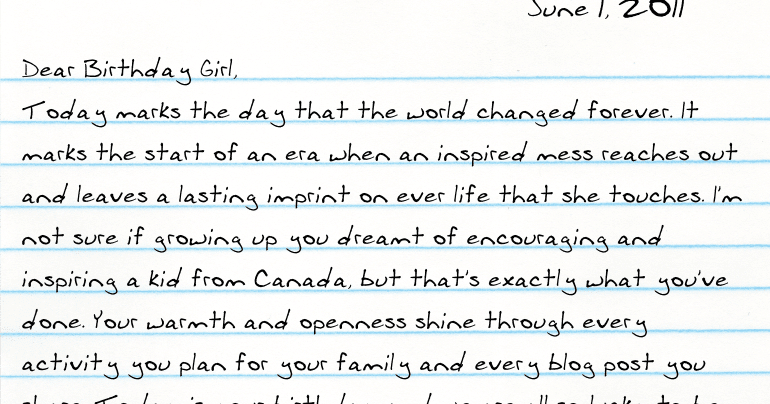 June 1, 2011
Dear Birthday Girl,
Today marks the day that the world changed forever. It
marks the start of an era when an inspired mess reaches out
and leaves a lasting imprint on ever life that she touches. I'm
not sure if growing up you dreamt of encouraging and
inspiring a kid from Canada, but that's exactly what you've
done. Your warmth and openness shine through every
activity you plan for your family and every blog post you